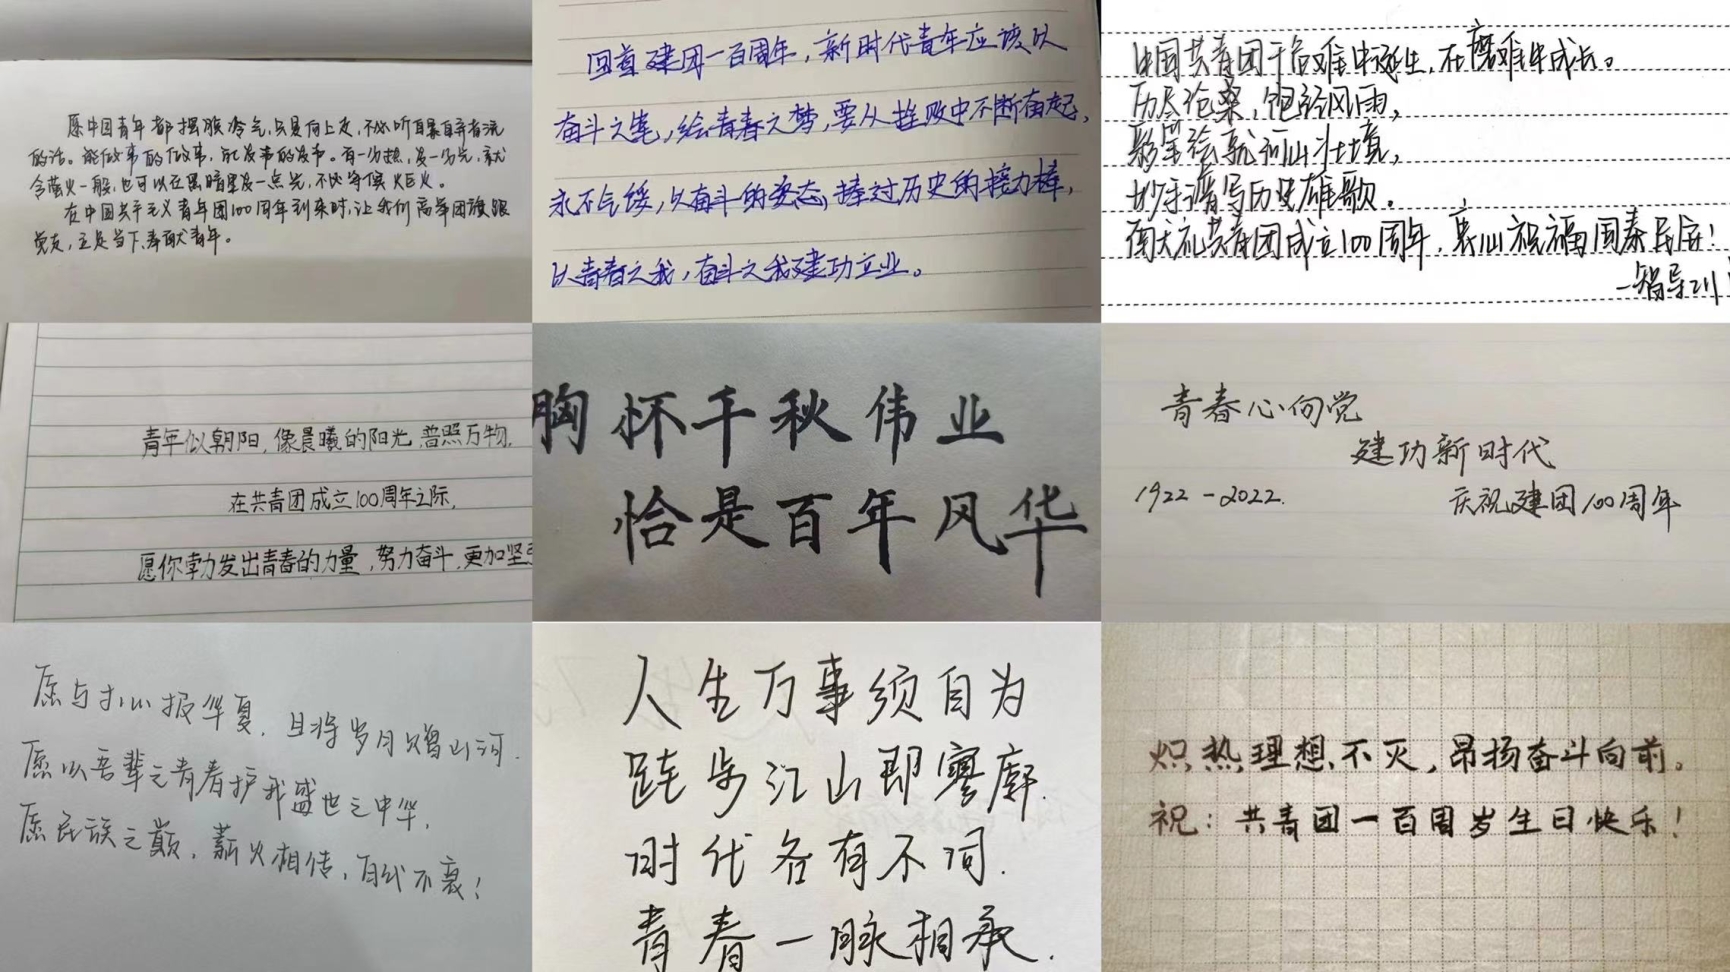 愿中国青年都摆脱冷气，只是向上走，不必听自暴自弃者流
的话。能做事的做事，能发声的发声。有一分热，发一分光，就
令萤火一般，也可以在黑暗里发一点光，不必等候炬火。
在中国共产主义青年团100周年到来时，让我们高举团旗跟
党走，正是当下，奉献青年。
回首建团一百周年，新时代青年应该以
奋斗之笔，绘青春之梦，要从挫败中不断奋起，
永不气馁，以奋斗的姿态，接过历史的接力棒，
以青春之我，奋斗之我建功立业。
中国共青团于危难中诞生，在磨难中成长。
历尽沧桑，饱经风雨，
彩笔绘就河山壮境，
妙手谱写历史雄歌。
共青团成立100周年，衷心祝福国泰民安！
青年似朝阳，像晨曦的阳光，普照万物，
在共青团成立100周年之际，
愿你勃力发出青春的力量，努力奋斗，更加坚
胸怀千秋伟业
恰是百年风华
青春心向党
建功新时代
1922-2022.
庆祝建团100周年
愿与寸心报华夏，且将岁月赠山河.
愿以吾辈之青春护我盛世之中华，
愿民族之巅，薪火相传，百代不衰！
人生万事须自为
跬步江山即寥廓.
时代各有不同.
青春一脉相承.
炽热理想不灭，昂扬奋斗向前。
祝：共青团一百周岁生日快乐！